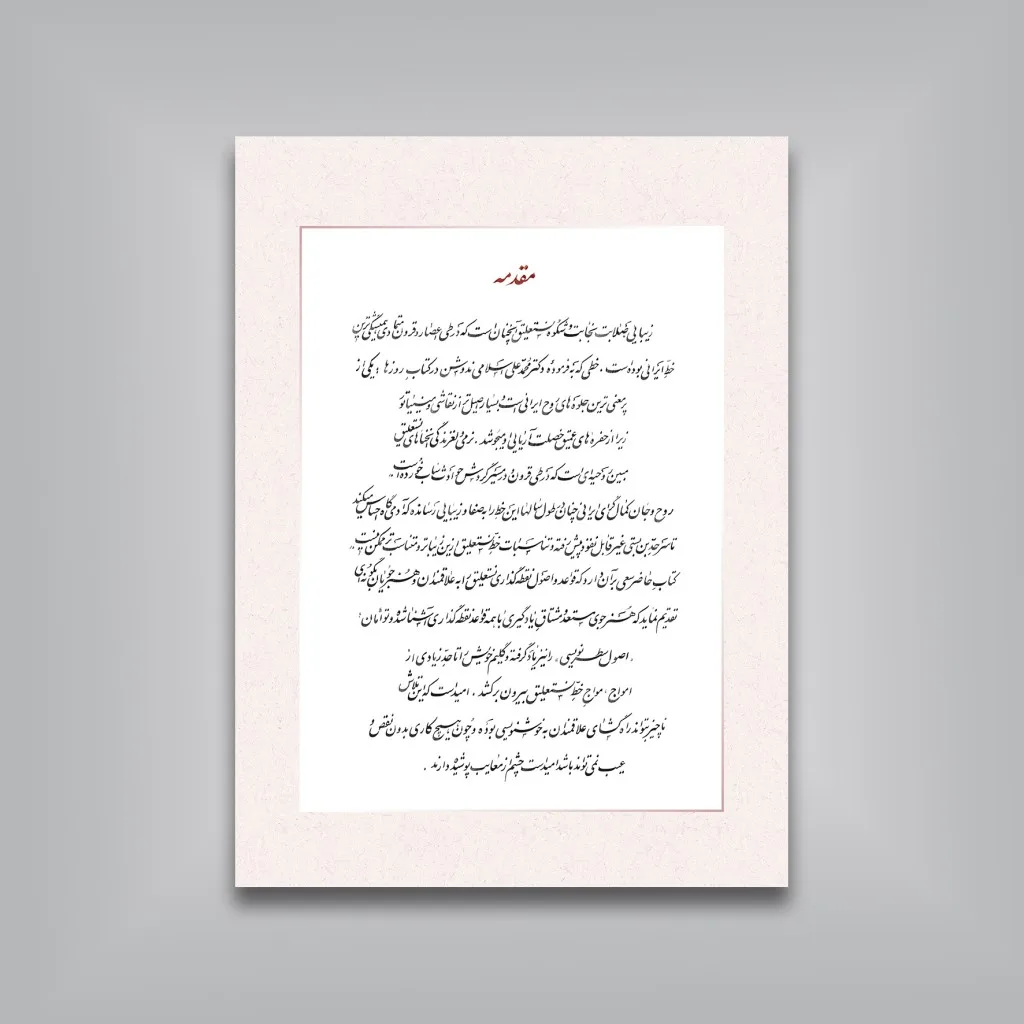 مقدمه
زیبایی، صلابت، نجابت و شکوه نستعلیق آنچنان است که در طی اعصار و قرون متمادی همیشگی‌ترین
خط ایرانی بوده است. خطی که به فرموده دکتر محمد علی اسلامی ندوشن در کتاب روزها: یکی از
پرمعنی ترین جلوه های روح ایرانی است و بسیار اصیل تر از نقاشی و مینیاتور
زیرا از حفره های عمیق خصلت آریایی او میجوشد. نرمی و لغزندگی انحناهای نستعلیق
مبین روحیه‌ای است که در طی قرون و در مسیر گردش حوادث شتاب خورده است.
روح و جان کمال گرای ایرانی چنان در طول سالها این خط را به صفا و زیبایی رسانده که آدمی گاه احساس میکند
تا سرحد بن بستی غیر قابل نفوذ پیش رفته و تناسبات خط نستعلیق از این زیباتر و متناسب تر ممکن نیست.
کتاب حاضر سعی بر آن دارد که قواعد و اصول نقطه گذاری نستعلیق را به علاقمندان و هنرجویان به گونه‌ای
تقدیم نماید که هنرجوی مستعد و مشتاق یادگیری با همه قواعد نقطه گذاری آشنا شده و توأمان؛
«اصول سطرنویسی» را نیز یاد گرفته و گلیم خویش را تا حد زیادی از
امواج مواج خط نستعلیق بیرون برکشد. امید است که این تلاش
ناچیز بتواند راه گشای علاقمندان به خوشنویسی بوده و چون هیچ کاری بدون نقص و
عیب نمی تواند باشد امید است چشم از معایب پوشیده دارند.